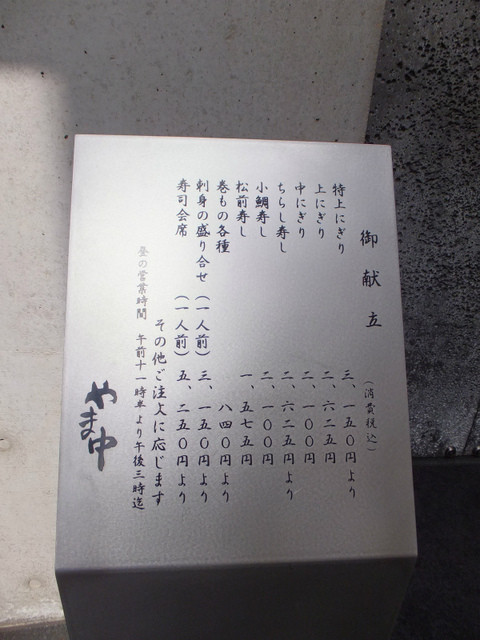 御献立
（消費税込）
特上にぎり 三、一五〇円より
上にぎり 二、六二五円
中にぎり 二、一〇〇円
ちらし寿し 二、六二五円より
小鯛寿し 二、一〇〇円
松前寿し 一、五七五円
巻もの各種 八四〇円より
刺身の盛り合せ（一人前）三、一五〇円より
寿司会席（一人前）五、二五〇円より
その他ご注文に応じます
昼の営業時間 午前十一時半より午後三時迄
やま中